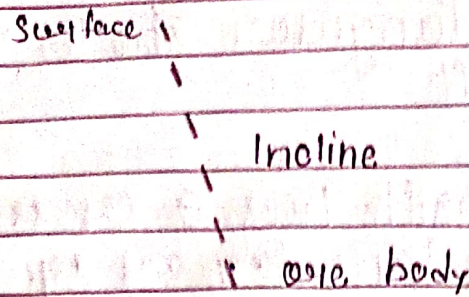 Surface
Incline
ore body